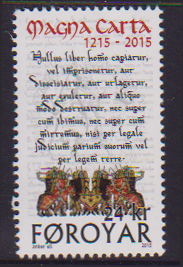 MAGNA CARTA
1215 - 2015
Nullus liber homo capiatur,
vel imprisonetur, aut
disseisiatur, aut utlagetur,
aut exuletur, aut aliquo
modo destruatur, nec super
cum ibimus, nec super cum
mittemus, nisi per legale
judicium parium suorum vel
per legem terre
24 kr
FØROYAR
2015